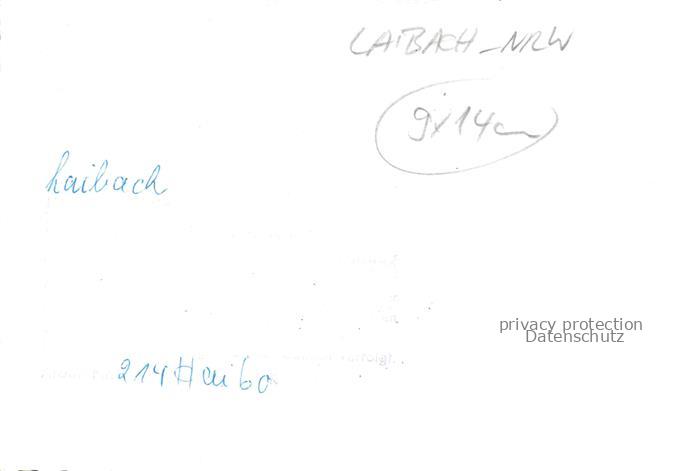 LAIBACH_NRW
9x14cm
haibach
privacy protection
Datenschutz
214Haiba